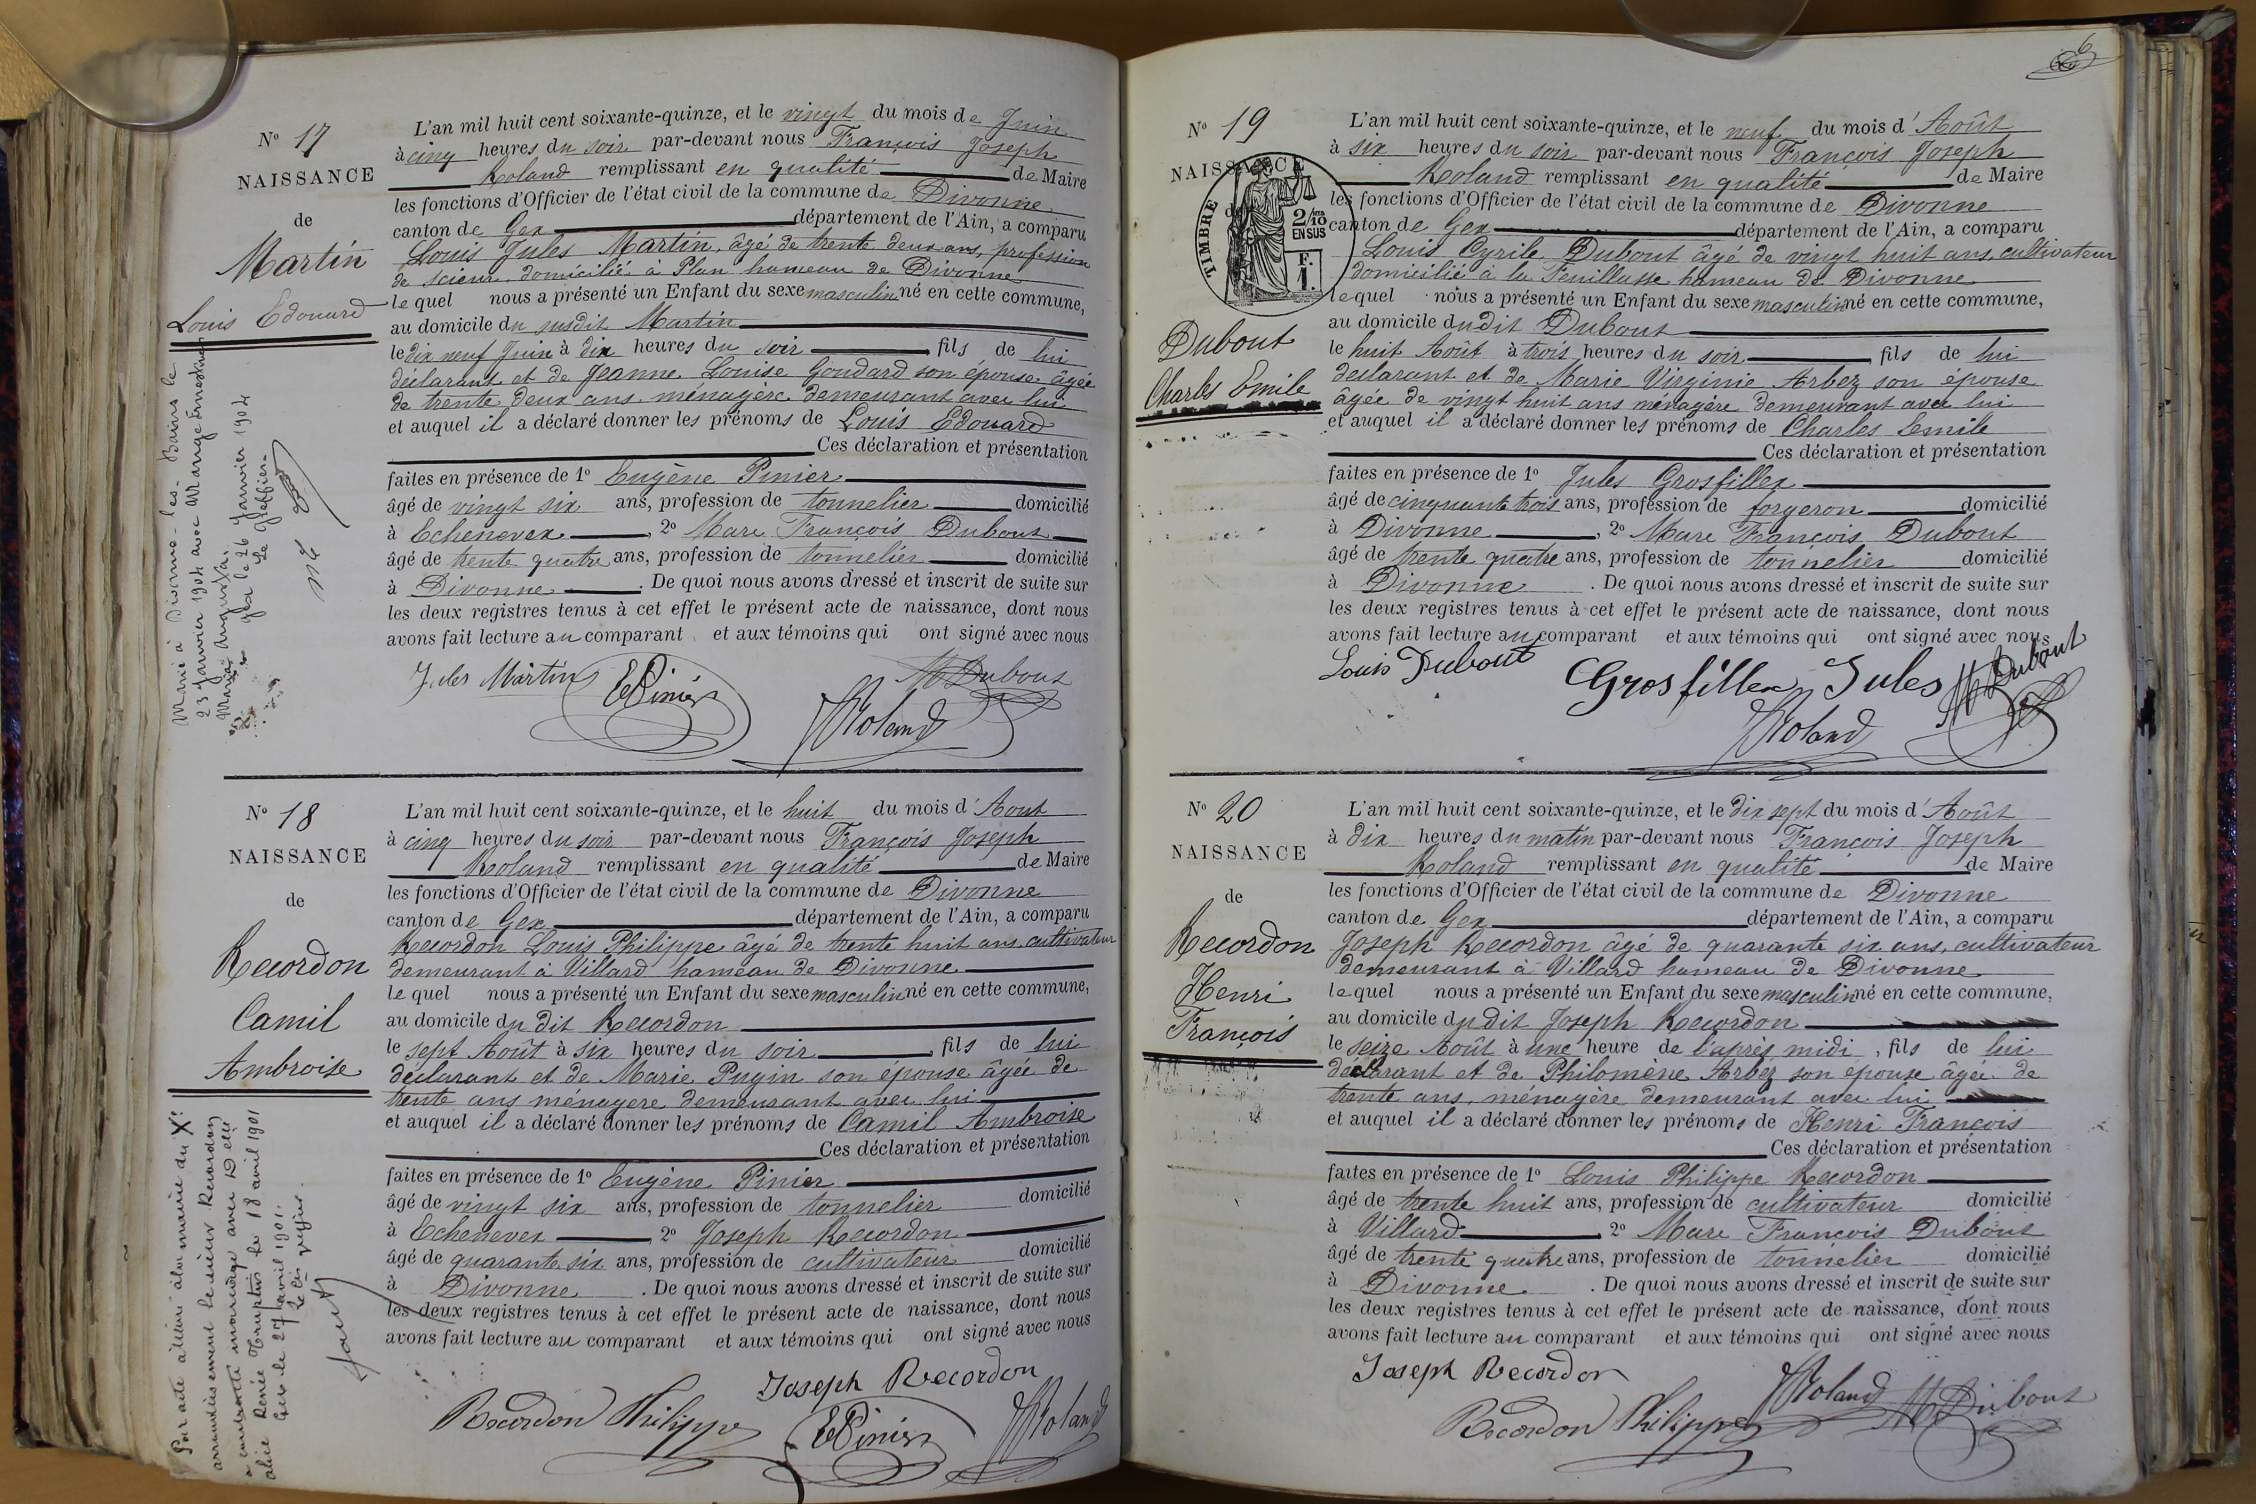 N° 17
NAISSANCE
de
Martin
Louis Edouard
Marié à Divonne-les-Bains le
23 Janvier 1904 avec Mange Ernestine
Maria Augusta.
Gex le 26 Janvier 1904
Le Greffier
L'an mil huit cent soixante-quinze, et le vingt du mois de Juin
à cinq heures du soir par-devant nous François Joseph
Roland remplissant en qualité de Maire
les fonctions d'Officier de l'état civil de la commune de Divonne
canton de Gex département de l'Ain, a comparu
Louis Jules Martin, âgé de trente deux ans, profession
de scieur, domicilié à Plan hameau de Divonne
lequel nous a présenté un Enfant du sexe masculin né en cette commune,
au domicile du susdit Martin
le dix neuf Juin à dix heures du soir fils de lui
déclarant et de Jeanne Louise Goudard son épouse âgée
de trente deux ans ménagère demeurant avec lui
et auquel il a déclaré donner les prénoms de Louis Edouard
Ces déclaration et présentation
faites en présence de 1° Eugène Pinier
âgé de vingt six ans, profession de tonnelier domicilié
à Echenevex, 2° Marc François Dubout
âgé de trente quatre ans, profession de tonnelier domicilié
à Divonne. De quoi nous avons dressé et inscrit de suite sur
les deux registres tenus à cet effet le présent acte de naissance, dont nous
avons fait lecture au comparant et aux témoins qui ont signé avec nous
Jules Martin EPinier MDubout
JRoland
N° 18
NAISSANCE
de
Recordon
Camil
Ambroise
Par acte à lieu du maire du Xe
arrondissement le sieur Recordon
a contracté mariage avec Delle
alice Renée le 18 avril 1901
Gex le 27 avril 1901.
Le Cis greffier.
L'an mil huit cent soixante-quinze, et le huit du mois d'Aout
à cinq heures du soir par-devant nous François Joseph
Roland remplissant en qualité de Maire
les fonctions d'Officier de l'état civil de la commune de Divonne
canton de Gex département de l'Ain, a comparu
Recordon Louis Philippe âgé de trente huit ans cultivateur
demeurant à Villard hameau de Divonne
lequel nous a présenté un Enfant du sexe masculin né en cette commune,
au domicile du dit Recordon
le sept Août à six heures du soir, fils de lui
déclarant et de Marie Pugin son épouse âgée de
trente ans ménagère demeurant avec lui
et auquel il a déclaré donner les prénoms de Camil Ambroise
Ces déclaration et présentation
faites en présence de 1° Eugène Pinier
âgé de vingt six ans, profession de tonnelier domicilié
à Echenevex, 2° Joseph Recordon
âgé de quarante six ans, profession de cultivateur domicilié
à Divonne. De quoi nous avons dressé et inscrit de suite sur
les deux registres tenus à cet effet le présent acte de naissance, dont nous
avons fait lecture au comparant et aux témoins qui ont signé avec nous
Joseph Recordon
Recordon Philippe EPinier JRoland
6
N° 19
NAISSANCE
TIMBRE
2/10mes
EN SUS
F.
1.
Dubout
Charles Emile
L'an mil huit cent soixante-quinze, et le neuf du mois d'Août
à six heures du soir par-devant nous François Joseph
Roland remplissant en qualité de Maire
les fonctions d'Officier de l'état civil de la commune de Divonne
canton de Gex département de l'Ain, a comparu
Louis Cyrile Dubout âgé de vingt huit ans, cultivateur
domicilié à la Feuillasse hameau de Divonne
lequel nous a présenté un Enfant du sexe masculin né en cette commune,
au domicile dudit Dubout
le huit Août à trois heures du soir fils de lui
déclarant et de Marie Virginie Arbez son épouse
âgée de vingt huit ans ménagère demeurant avec lui
et auquel il a déclaré donner les prénoms de Charles Emile
Ces déclaration et présentation
faites en présence de 1° Jules Grosfillex
âgé de cinquante trois ans, profession de forgeron domicilié
à Divonne, 2° Marc François Dubout
âgé de trente quatre ans, profession de tonnelier domicilié
à Divonne. De quoi nous avons dressé et inscrit de suite sur
les deux registres tenus à cet effet le présent acte de naissance, dont nous
avons fait lecture au comparant et aux témoins qui ont signé avec nous
Louis Dubout Grosfillex Jules MDubout
JRoland
N° 20
NAISSANCE
de
Recordon
Henri
François
L'an mil huit cent soixante-quinze, et le dix sept du mois d'Août
à dix heures du matin par-devant nous François Joseph
Roland remplissant en qualité de Maire
les fonctions d'Officier de l'état civil de la commune de Divonne
canton de Gex département de l'Ain, a comparu
Joseph Recordon âgé de quarante six ans, cultivateur
demeurant à Villard hameau de Divonne
lequel nous a présenté un Enfant du sexe masculin né en cette commune,
au domicile dudit Joseph Recordon
le seize Août à une heure de l'après midi, fils de lui
déclarant et de Philomène Arbez son épouse âgée de
trente ans, ménagère demeurant avec lui
et auquel il a déclaré donner les prénoms de Henri François
Ces déclaration et présentation
faites en présence de 1° Louis Philippe Recordon
âgé de trente huit ans, profession de cultivateur domicilié
à Villard 2° Marc François Dubout
âgé de trente quatre ans, profession de tonnelier domicilié
à Divonne. De quoi nous avons dressé et inscrit de suite sur
les deux registres tenus à cet effet le présent acte de naissance, dont nous
avons fait lecture au comparant et aux témoins qui ont signé avec nous
Joseph Recordon JRoland MDubout
Recordon Philippe